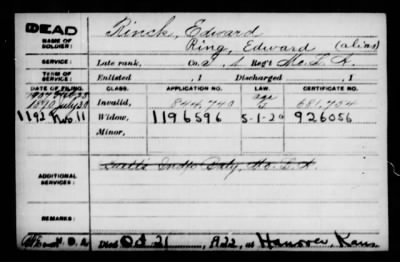 DEAD
NAME OF SOLDIER:
Rinck, Edward
Ring, Edward (alias)
SERVICE:
Late rank, Co. I, 1 Reg't Mo. L. A.
TERM OF SERVICE:
Enlisted , 1 Discharged , 1
DATE OF FILING. CLASS. APPLICATION NO. LAW. CERTIFICATE NO.
1890 July 29 Invalid, 844,740 G 681,704
Nov. 11 Widow, 1196596 5-1-20 926056
Minor,
ADDITIONAL SERVICES:
Batty, Mo. L. A.
REMARKS:
Died Oct. 21, 1922, at Hanover, Kans.